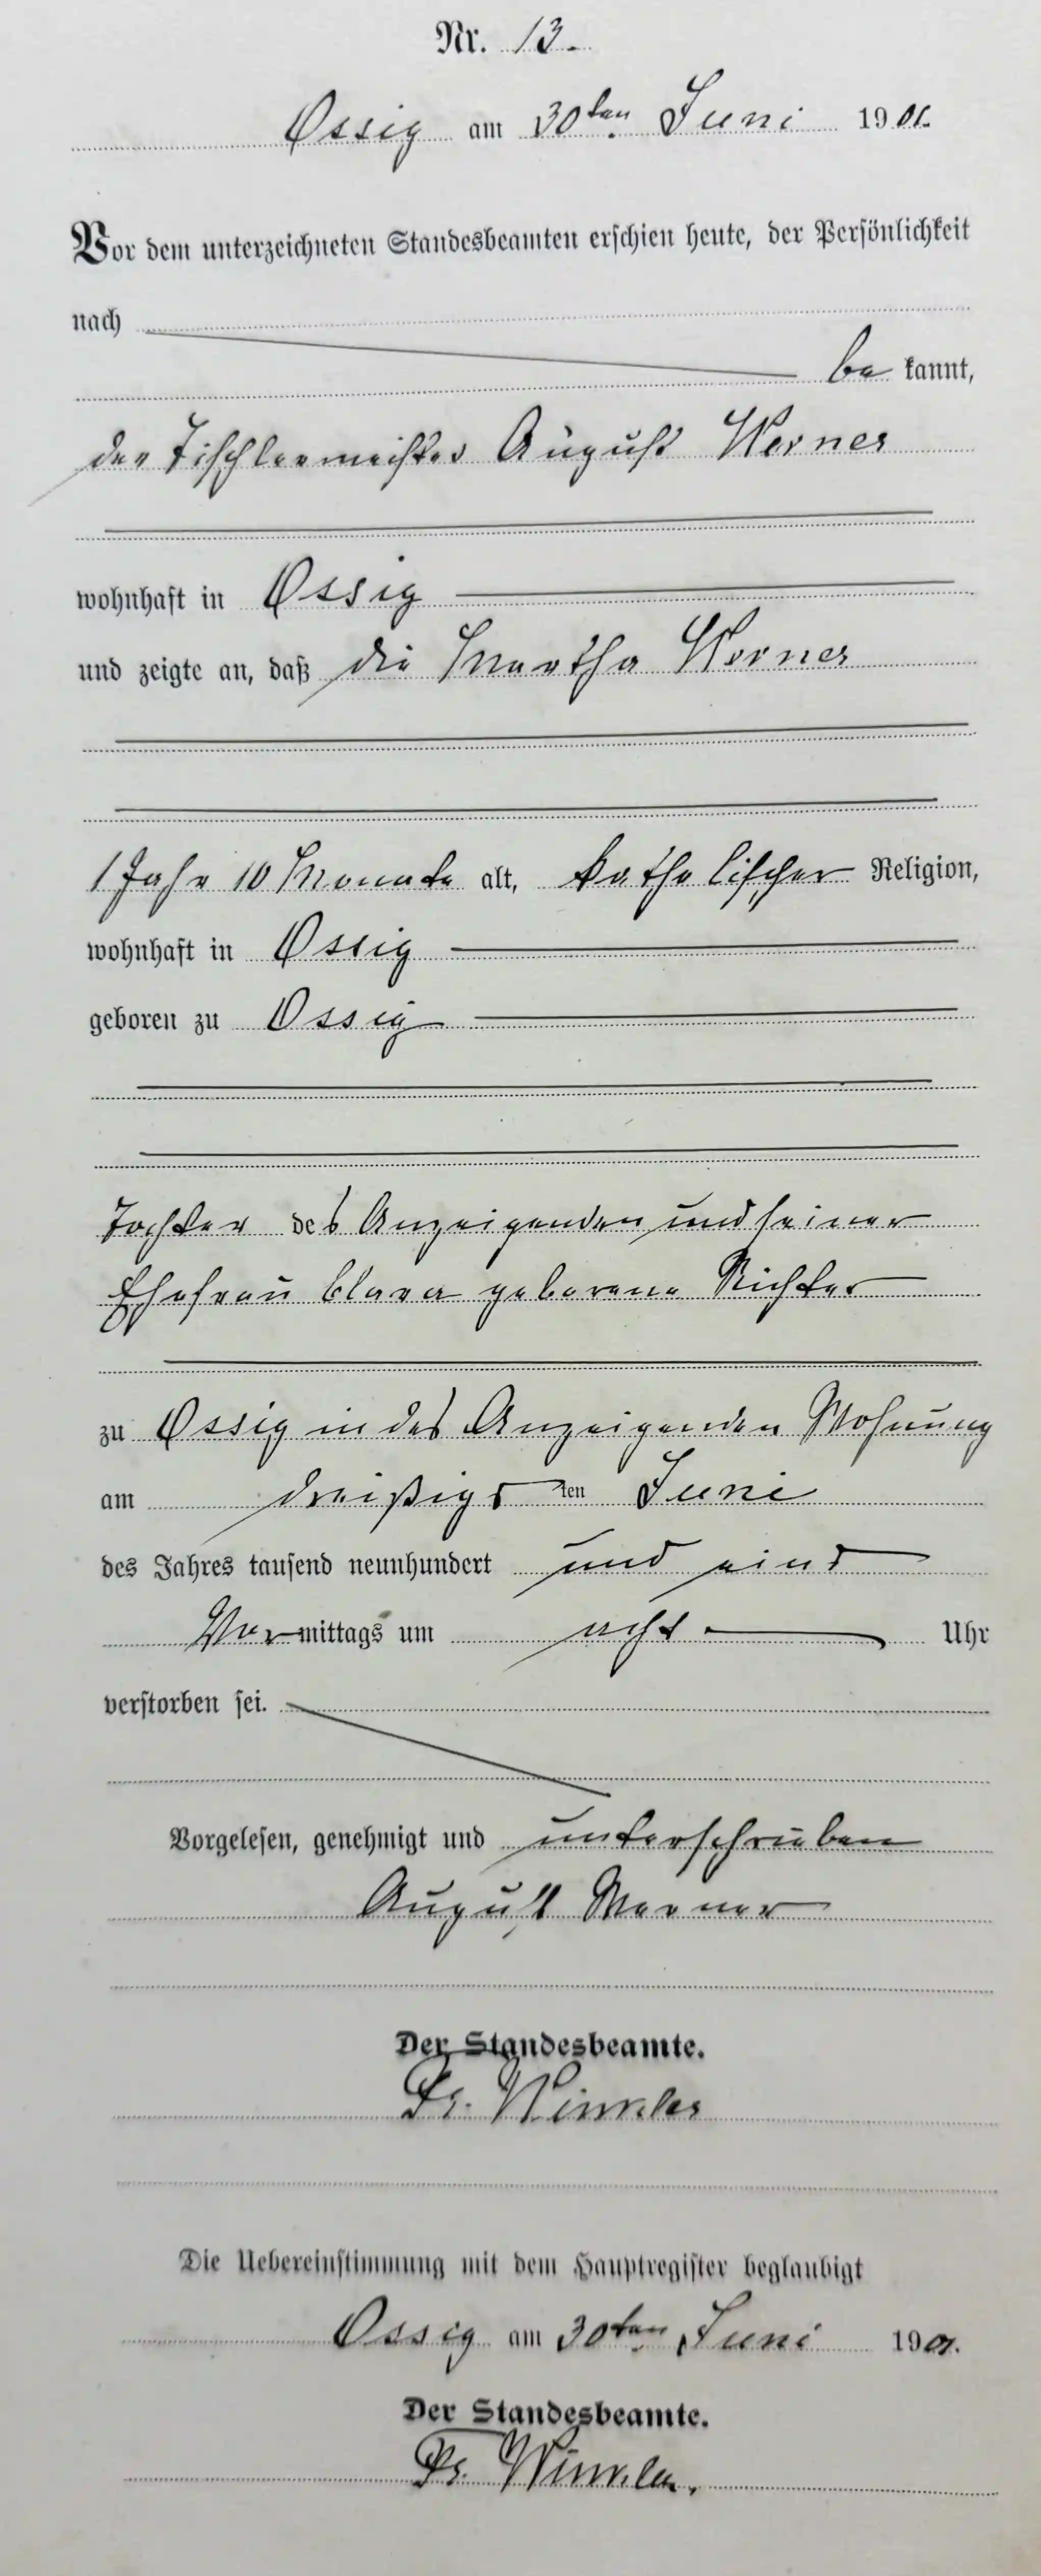 Nr. 13.
Ossig am 30ten Juni 1901.
Vor dem unterzeichneten Standesbeamten erschien heute, der Persönlichkeit
nach
be kannt,
der Tischlermeister August Werner
wohnhaft in Ossig
und zeigte an, daß die Martha Werner
1 Jahr 10 Monate alt, katholischer Religion,
wohnhaft in Ossig
geboren zu Ossig
Tochter des Anzeigenden und seiner
Ehefrau Clara geborene Richter
zu Ossig in des Anzeigenden Wohnung
am dreißigsten Juni
des Jahres tausend neunhundert und eins
Vormittags um acht Uhr
verstorben sei.
Vorgelesen, genehmigt und unterschrieben
August Werner
Der Standesbeamte.
Fr. Winkler
Die Uebereinstimmung mit dem Hauptregister beglaubigt
Ossig am 30ten Juni 1901.
Der Standesbeamte.
Fr. Winkler.